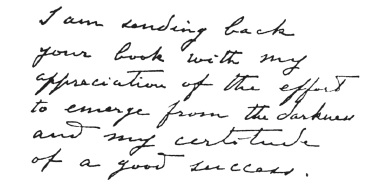 I am sending back
your book with my
appreciation of the effort
to emerge from the darkness
and my certitude
of a good success.